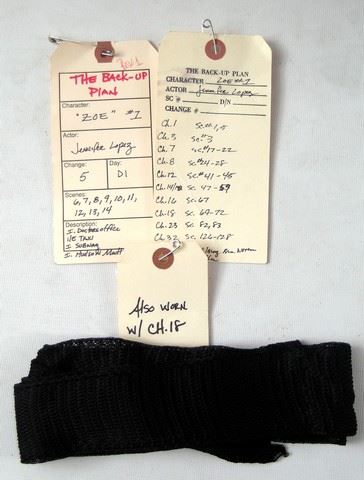 THE BACK-UP
PLAN
Character:
"ZOE" #1
Actor:
Jennifer Lopez
Change:
5
Day:
D1
Scenes:
6, 7, 8, 9, 10, 11,
12, 13, 14
Description:
I. Doctors office
I/E TAXI
I SUBWAY
I. Hudson Mutt
THE BACK-UP PLAN
CHARACTER ZOE #1
ACTOR Jennifer Lopez
SC # D/N
CHANGE #
Ch. 1 Sc. #1, 5
Ch. 3 Sc. #3
Ch. 7 Sc. #17-22
Ch. 8 Sc. #24-28
Ch. 12 Sc. #41-45
Sc. 47-59
Ch. 16 Sc. 67
Ch. 18 Sc. 69-72
Ch. 23 Sc. 82, 83
Ch. 32 Sc. 126-128
Also worn
w/ CH. 18